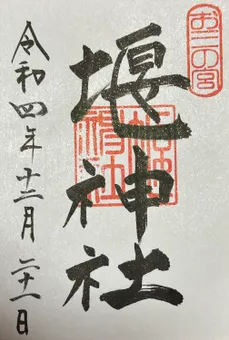 お二の宮
堰神社
令和四年十二月二十一日